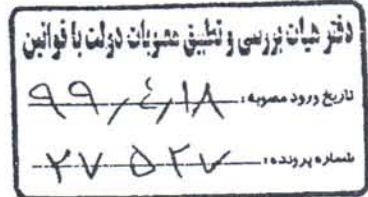 دفتر هیات بررسی و تطبیق مصوبات دولت با قوانین
تاریخ ورود مصوبه: ۹۹/۴/۱۸
شماره پرونده: ۲۷۵۴۷